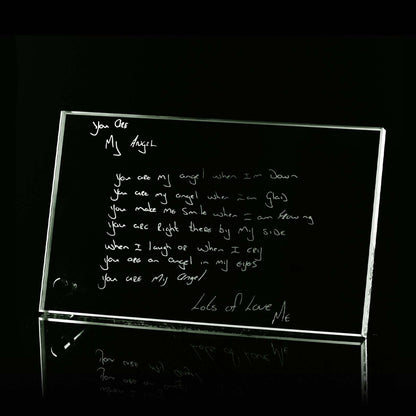 you are
My Angel
you are my angel when I'm Down
you are my angel when I am Glad
you make me smile when I am
you are Right there by My SIDE
when I laugh or when I cry
you are an angel in my eyes
you are My Angel
Lots of Love
ME